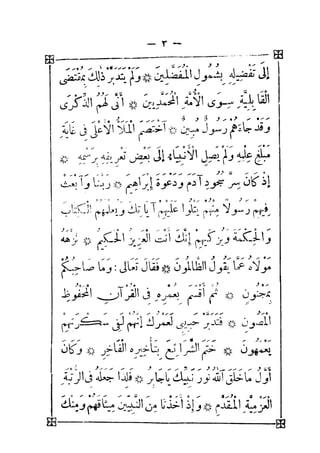 — ٣ —
إِلَى تَفْضِيلِهِ بِشُمُولِ الْمُفَضَّلِينَ * وَلَمْ يَتَدَبَّرْ ذَلِكَ بِمُقْتَضَى
الْقَابِلِيَّةِ سِوَى الْأُمَّةِ الْمُحَمَّدِيِّينَ * أَنَّى لَهُمُ الذِّكْرَى
وَقَدْ جَاءَهُمْ رَسُولٌ مُبِينٌ * اخْتَصَمَ الْمَلَأُ الْأَعْلَى فِي غَايَةِ
مَبْلَغِ عِلْمِهِ وَلَمْ يَصِلِ الْأَنْبِيَاءُ إِلَى بَعْضِ تَعْرِيفِهِ بِرَسْمِهِ *
إِذْ كَانَ سِرَّ سُجُودِ آدَمَ وَدَعْوَةَ إِبْرَاهِيمَ * رَبَّنَا وَابْعَثْ
فِيهِمْ رَسُولًا مِنْهُمْ يَتْلُوا عَلَيْهِمْ آيَاتِكَ وَيُعَلِّمُهُمُ الْكِتَابَ
وَالْحِكْمَةَ وَيُزَكِّيهِمْ إِنَّكَ أَنْتَ الْعَزِيزُ الْحَكِيمُ * نَزَّهَهُ
مَوْلَاهُ عَمَّا يَقُولُ الظَّالِمُونَ * فَقَالَ تَعَالَى : وَمَا صَاحِبُكُمْ
بِمَجْنُونٍ * ثُمَّ أَقْسَمَ بِعُمْرِهِ فِي الْقُرْآنِ الْمَحْفُوظِ
الْمَصُونِ * فَتَدَبَّرْ حَبِيبِي لَعَمْرُكَ إِنَّهُمْ لَفِي سَكْرَتِهِمْ
يَعْمَهُونَ * خَتَمَ الشَّرَائِعَ بِتَأْخِيرِهِ الْفَاخِرِ * وَكَانَ
أَوَّلَ مَا خَلَقَ اللهُ نُورَ نَبِيِّكَ يَا جَابِرُ * فَلِذَا جَعَلَهُ فِي الرُّتْبَةِ
الْعَزْمِيَّةِ الْمُقَدَّمَ * وَإِذْ أَخَذْنَا مِنَ النَّبِيِّينَ مِيثَاقَهُمْ وَمِنْكَ